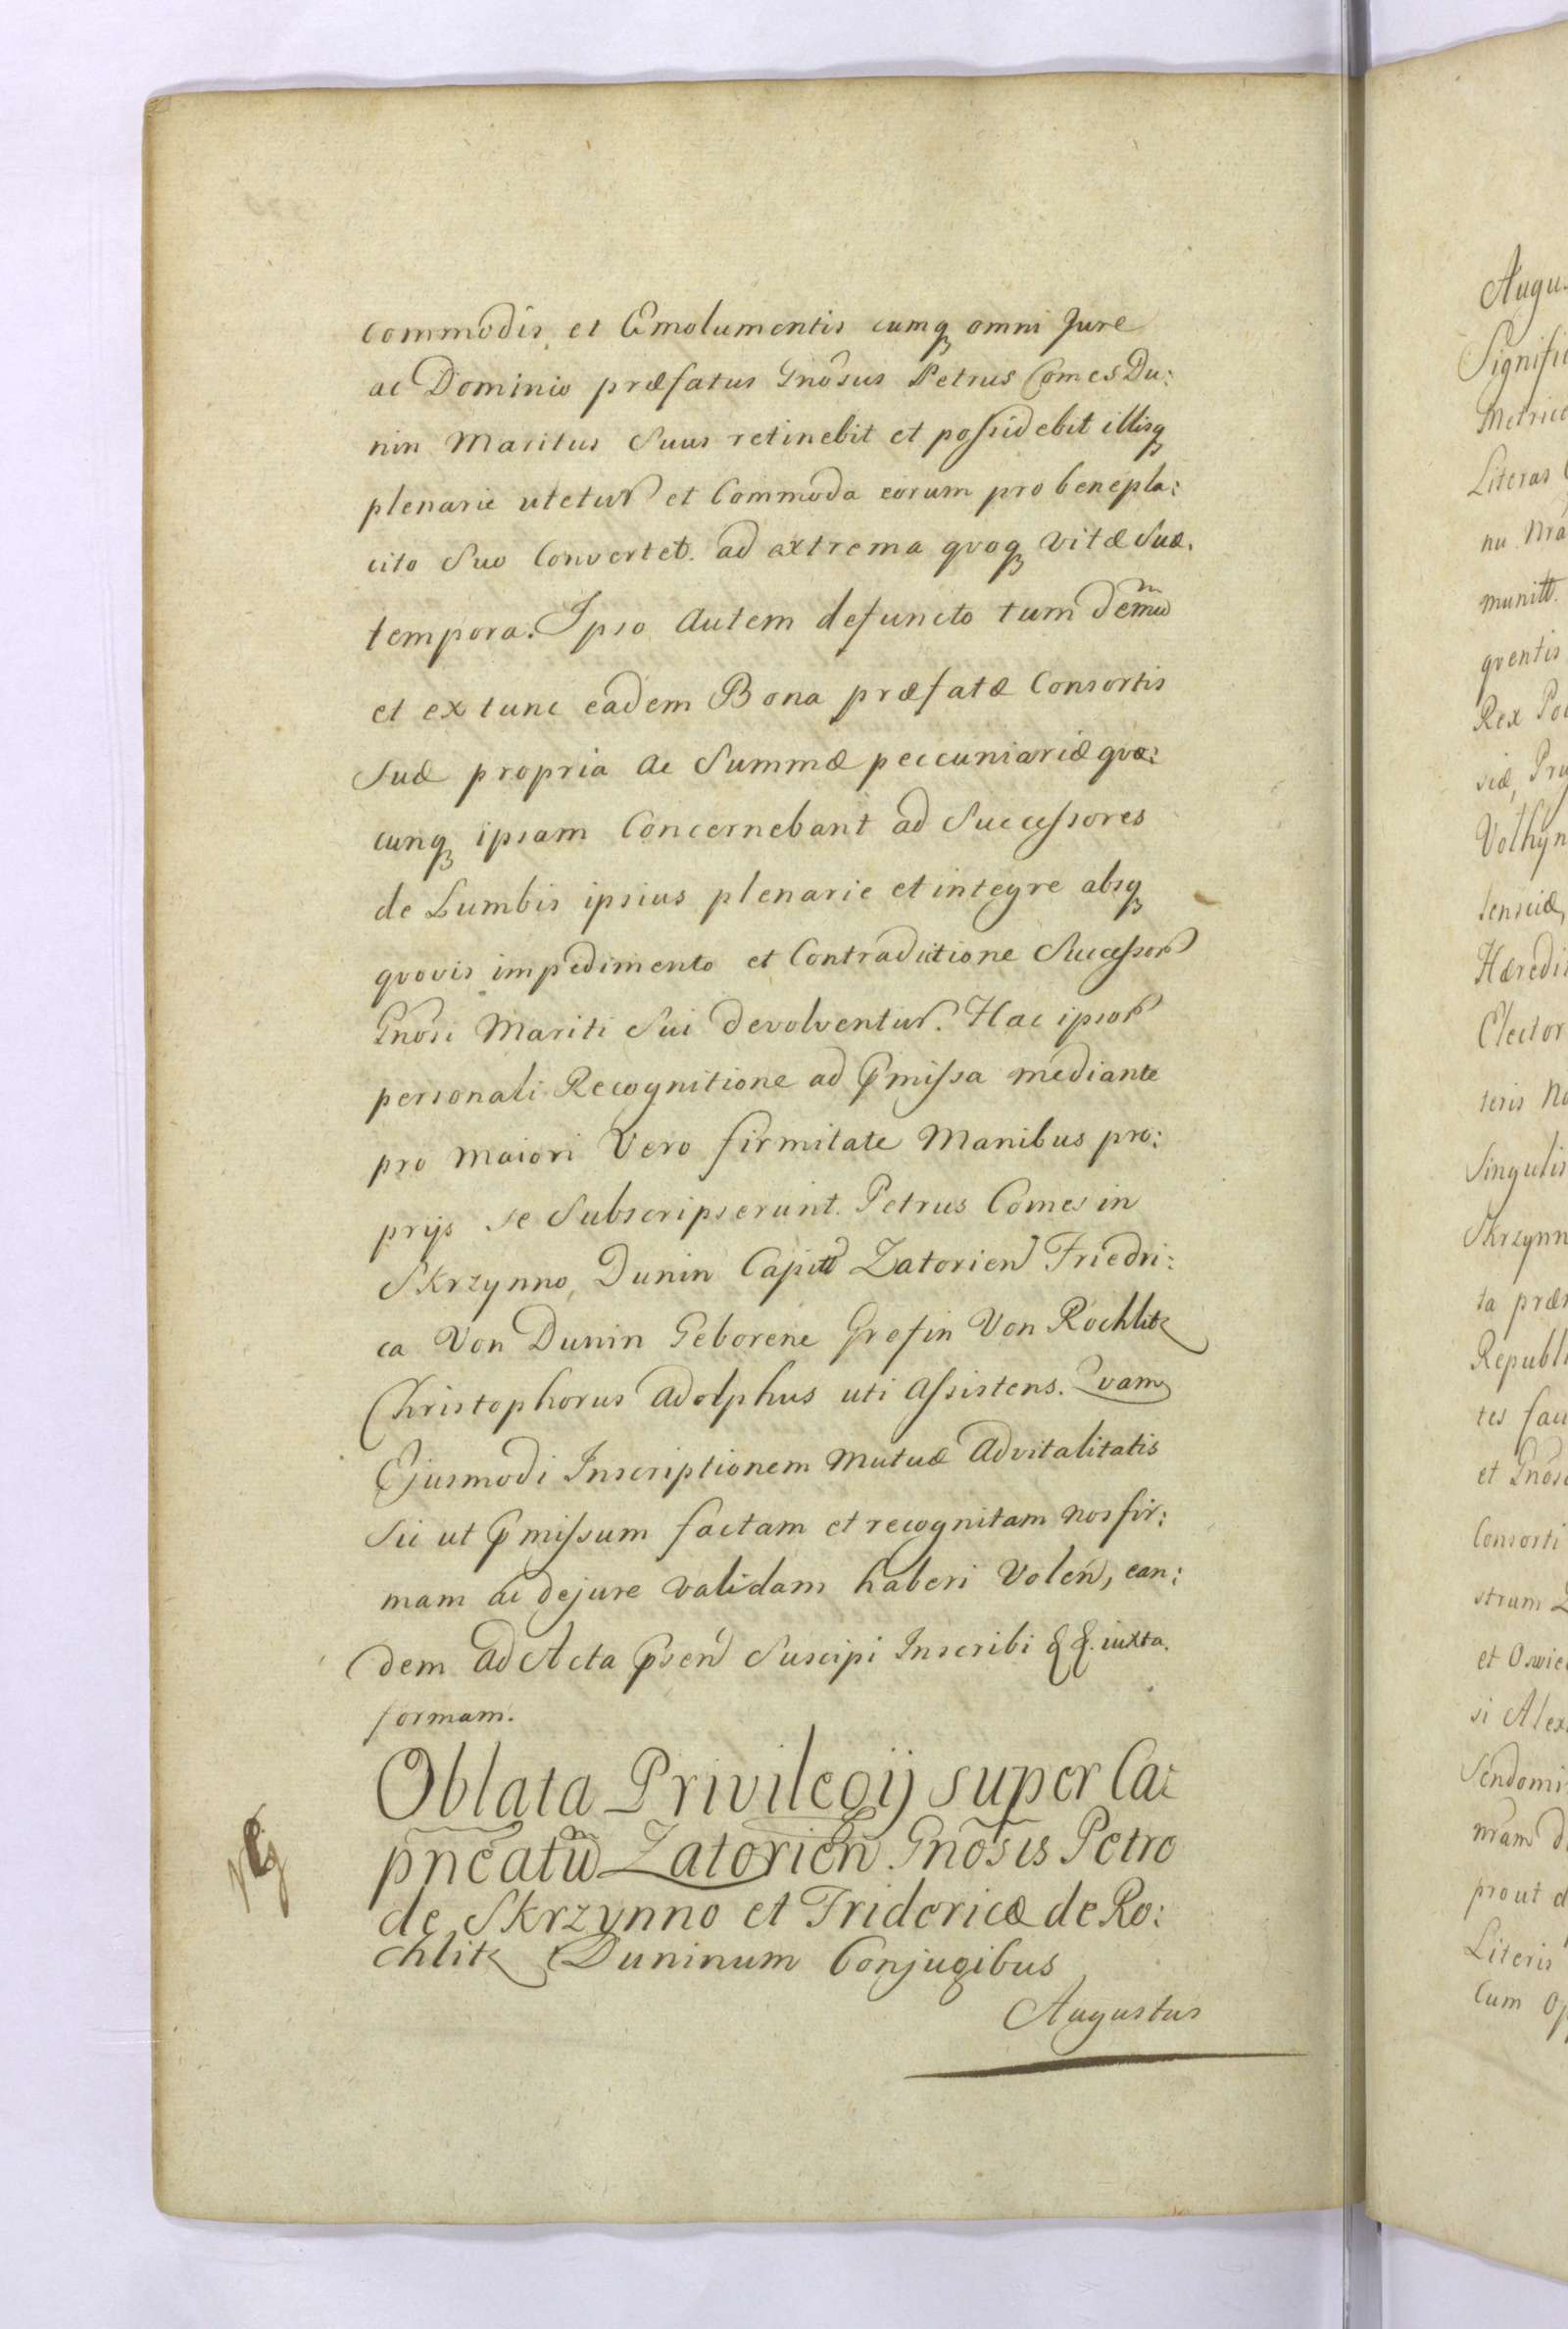 commodis, et Emolumentis cumq omni Jure
ac Dominio præfatus Gnosus Petrus Comes Du:
nin Maritus Suus retinebit et possidebit illisq
plenarie utetur et Commoda eorum pro benepla:
cito Suo Convertet. ad extrema qvoq vitæ Suæ.
tempora. Ipso autem defuncto tum demu
et ex tunc eadem Bona præfatæ Consortis
Suæ propria ac Summæ peccuniariæ qvæ:
cunq ipsam Concernebant ad Successores
de Lumbis ipsius plenarie et integre absq
qvovis impedimento et Contradictione Successor
Gnosi Mariti Sui devolventur. Hac ipsor
personali Recognitione ad pmissa mediante
pro maiori Vero firmitate Manibus pro:
prijs se Subscripserunt. Petrus Comes in
Skrzynno, Dunin Capitt Zatorien Friedri:
ca Von Dunin Geborene Grefin Von Rochlitz
Christophorus Adolphus uti Assistens. Qvam
Ejusmodi Inscriptionem Mutuæ Advitalitatis
Sic ut pmissum factam et recognitam nos fir:
mam ac dejure validam haberi Volen, ean:
dem ad Acta psen Suscipi Inscribi & &. iuxta.
formam.
Oblata Privilegij super Ca:
pneatu Zatorien. Gnosis Petro
de Skrzynno et Fridericæ de Ro:
chlitz Duninum Conjugibus
Augustus
Augus
Signifi
Metric
Literas
nu Nra
munitt.
qventis
Rex Po
siæ, Pru
Volhyn
senciæ,
Hæredi
Elector
teris No
Singulis
Skrzynn
ta præ
Republi
tes fau
et Gnos
Consorti
strum Z
et Oswie
si Alex
Sendomi
nram d
prout d
Literis
Cum Op